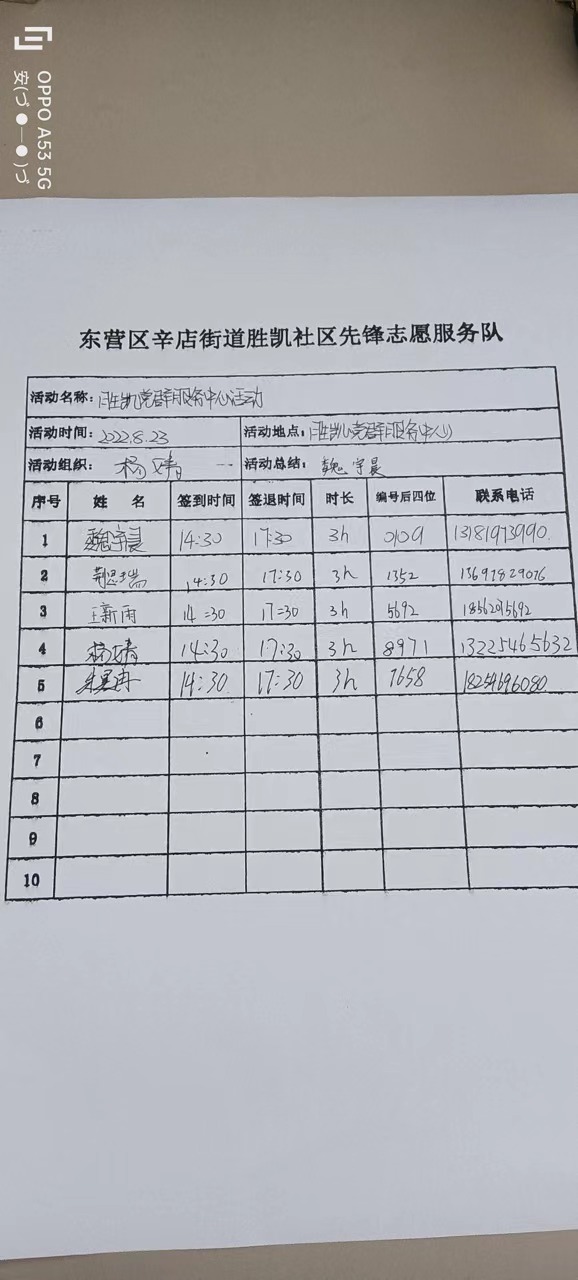 OPPO A53 5G
安(づ●─●)づ
东营区辛店街道胜凯社区先锋志愿服务队
活动名称: 胜凯党群服务中心活动
活动时间: 2022.8.23 活动地点: 胜凯党群服务中心
活动组织: 杨婧 活动总结: 魏宇晨
序号 姓 名 签到时间 签退时间 时长 编号后四位 联系电话
1 魏宇晨 14:30 17:30 3h 0109 13181973990.
2 荆思瑞 14:30 17:30 3h 1352
3 王新雨 14:30 17:30 3h 5692 18562095692
4 杨婧 14:30 17:30 3h 8971 13225465632
5 14:30 17:30 3h 7658 18254696080
6
7
8
9
10